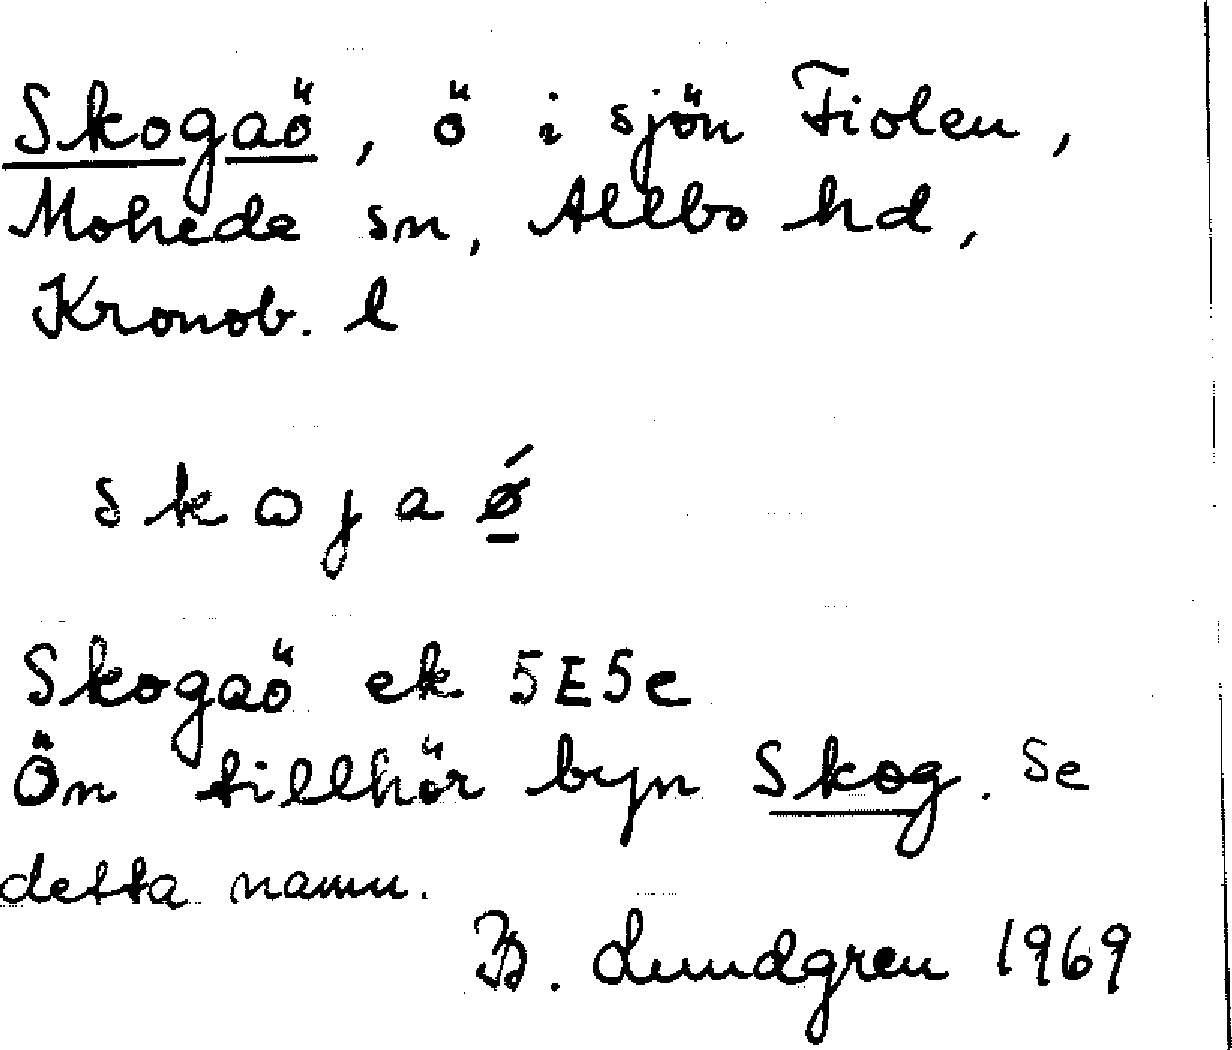 Skogaö, ö i sjön Fiolen,
Moheda sn, Allbo hd,
Kronob. l
skoɟaǿ
Skogaö ek 5E5c
Ön tillhör byn Skog. Se
detta namn.
B. Lundgren 1969